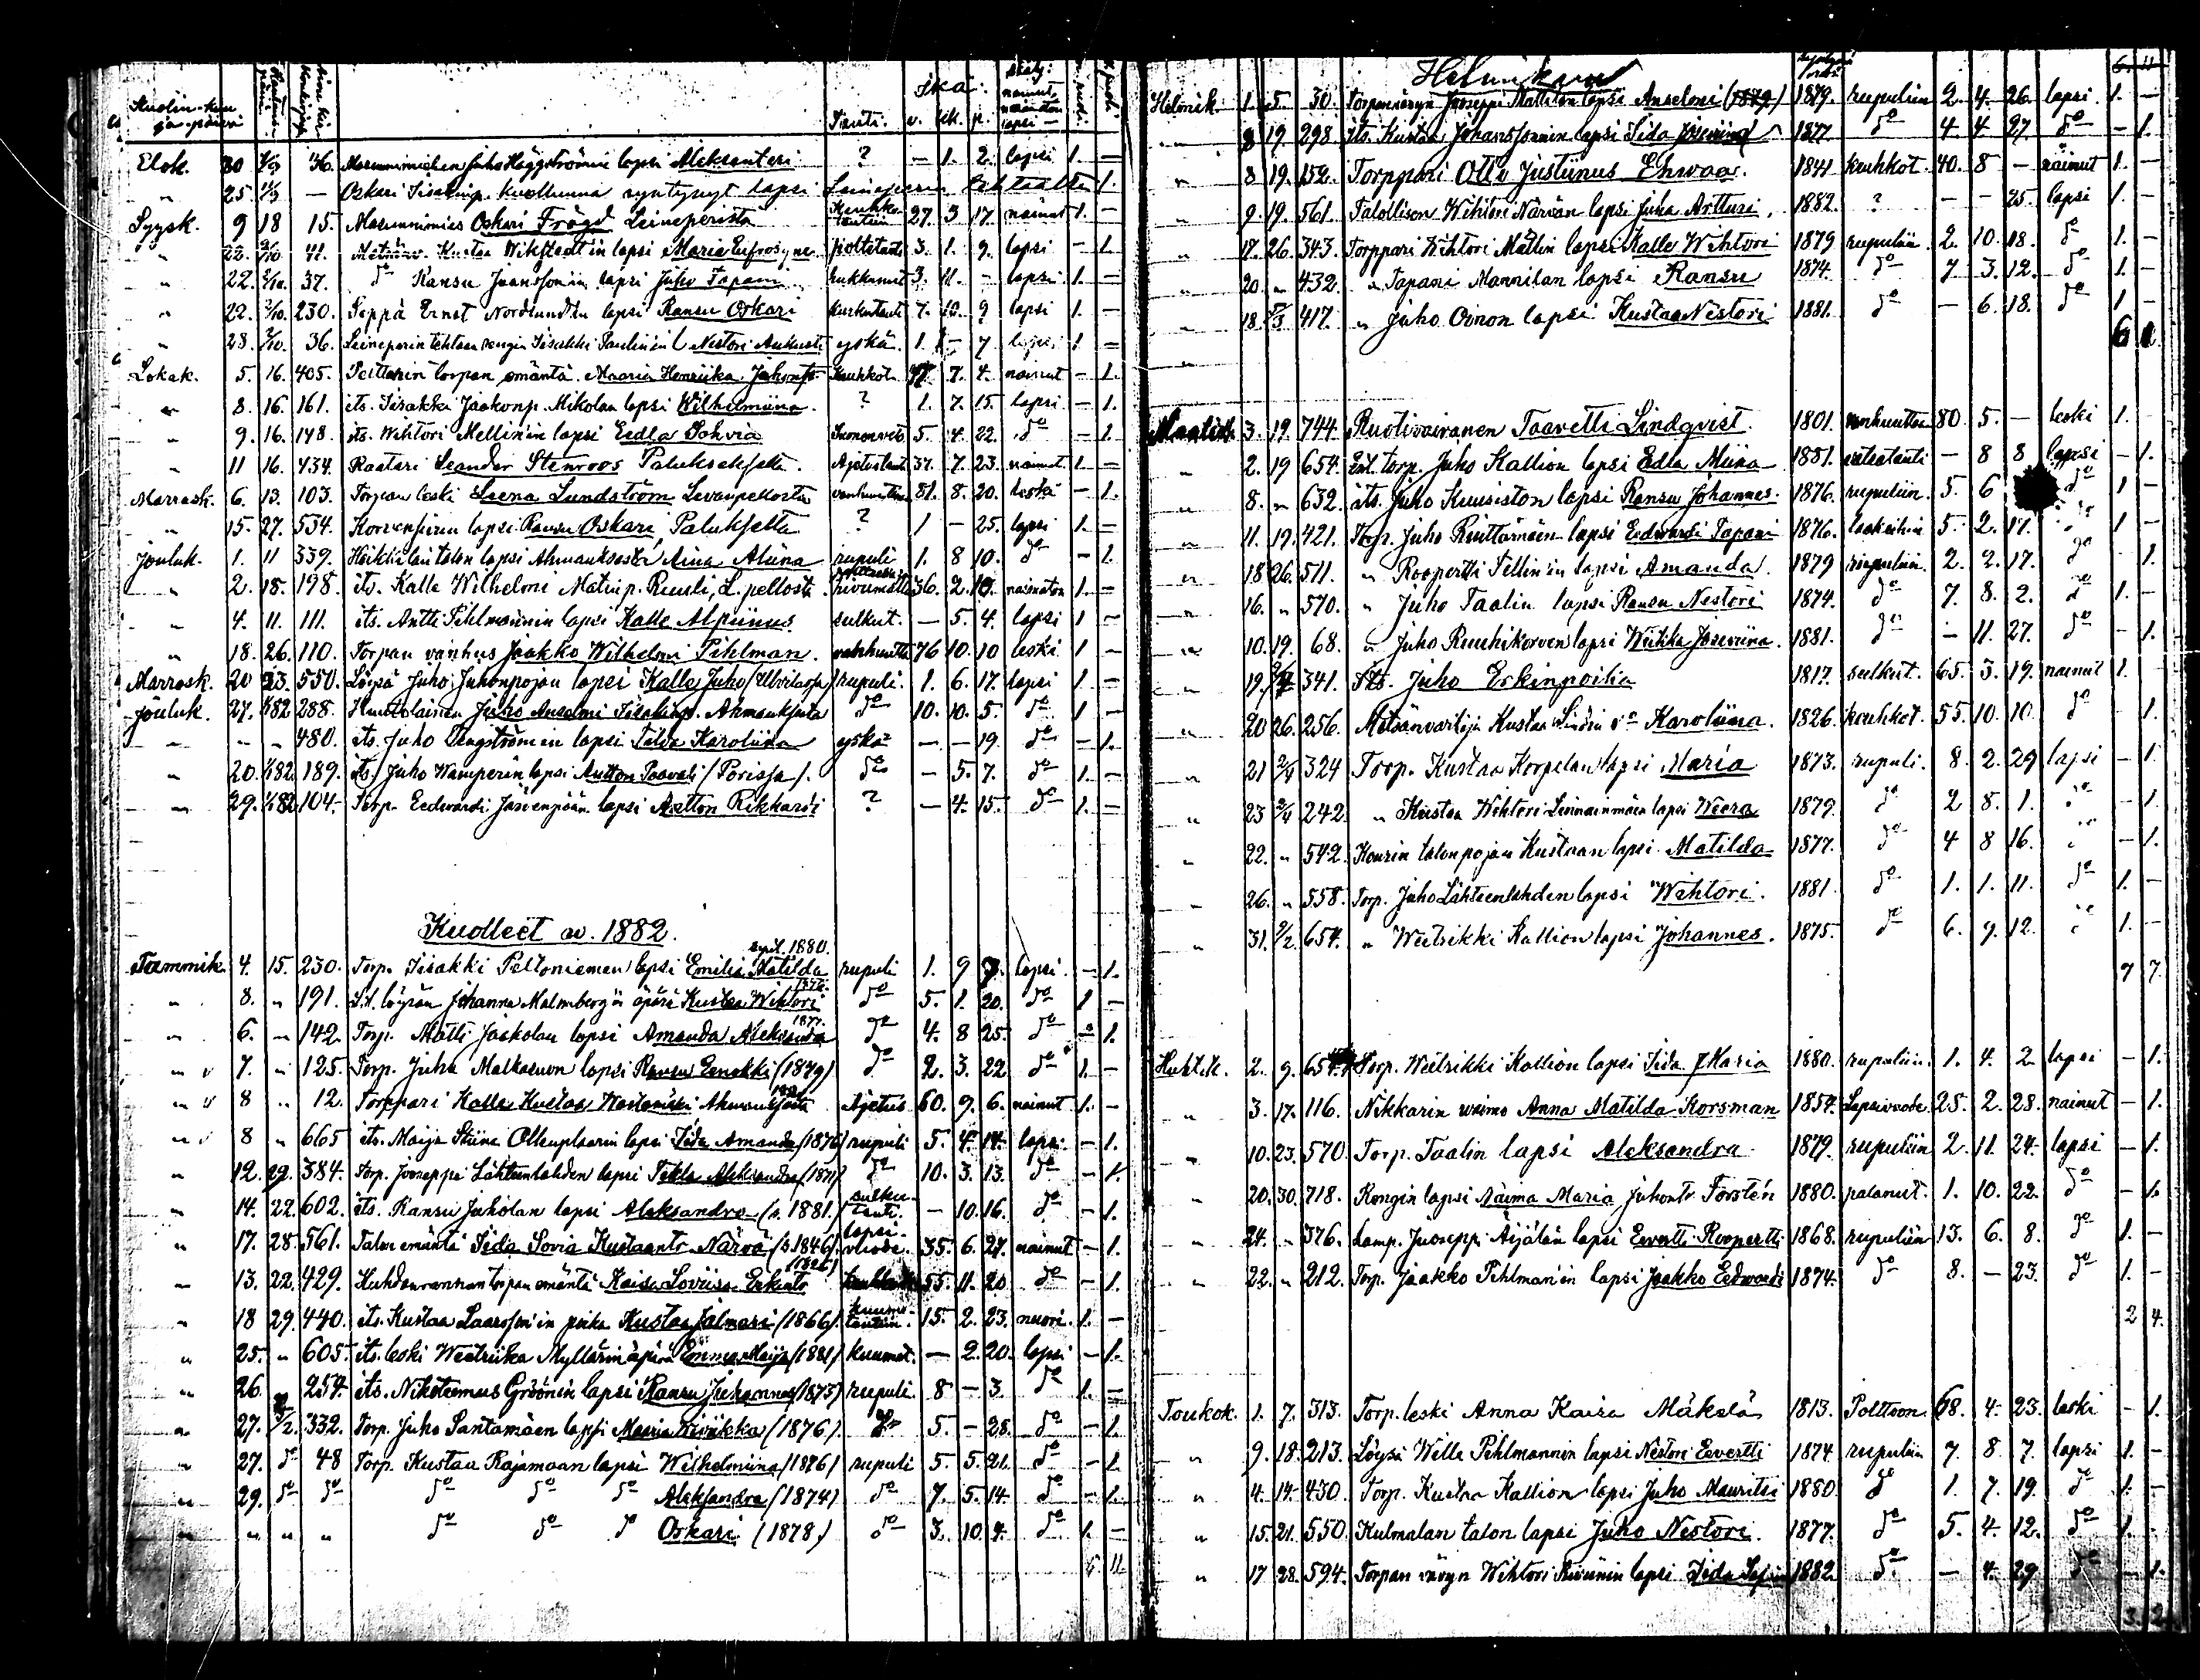 Kuolin-kuu ja-päivä Tauti. Ikä. v. kk. p.
Elok. 30 36. Masuunimiehen Juho Häggströmin lapsi Aleksanteri ? — 1. 2. lapsi 1. —
" 25 — Oskari Iisakinp. kuolluena syntynyt lapsi Leineperin tehtaalta 1.
Syysk. 9 18 15. Masuunimies Oskari Frögd Leineperistä 27. 3 17. nainut 1. —
" 22. 2/10 41. Kustaa Wikstedt'in lapsi Maria Eufrosyne 3. 1. 9. lapsi — 1.
" 22. 2/10. 37. do Ransu Joanssonin lapsi Juho Tapani hukkunut 3. 11. — lapsi 1. —
" 22. 2/10. 230. Seppä Ernst Nordlundin lapsi Ransu Oskari kurkutauti 7. 10. 9 lapsi 1. —
" 28. 2/10. 36. Leineperin tehtaan rengin Iisakki Paulinin l. Nestori Aukusti yskä. 1. — 7. lapsi 1. —
Lokak. 5. 16. 405. torpan emäntä Maaria Henriika Juhontr. keuhkot. 7. 4. nainut — 1.
" 8. 16. 161. its. Iisakki Jaakonp. Mikolan lapsi Wilhelmiina ? 1. 7. 15. lapsi — 1.
" 9. 16. 148. its. Wihtori Mellin'in lapsi Eedla Sohvia 5. 4. 22. do — 1.
" 11 16. 434. Raatari Leander Stenroos Paluksekseta 37. 7. 23. nainut 1. —
Marrask. 6. 13. 103. Torpan leski Leena Lundström Levanpellosta vanhuutta 81. 8. 20. leski — 1.
" 15. 27. 534. Korvenpirun lapsi Ransu Oskari, Paluksetta ? 1 — 25. lapsi 1. —
Jouluk. 1. 11 339. Heikkilän talon lapsi Ahmauksesta Aina Aliina rupuli 1. 8 10. do — 1.
" 2. 18. 198. its. Kalle Wilhelmi Matinp. Ruuli, L. pellosta 36. 2. 19. naimaton 1. —
" 4. 11. 111. its. Antti Pihlmannin lapsi Kalle Alpiinus sulkut. — 5. 4. lapsi 1 —
" 18. 26. 110. Torpan vanhus Jaakko Wilhelmi Pihlman. vanhuutta 76 10. 10 leski 1 —
Marrask. 20 23. 550. Löysä Juho Juhonpojan lapsi Kalle Juho (Ulvilassa) rupuli. 1. 6. 17. lapsi 1 —
Jouluk. 27. 1/1 82 288. Huutolainen Juho Anselmi Iisakinp. Ahmauksesta do 10. 10. 5. do 1 —
" " " 480. its. Juho Engströmin lapsi Tilda Karoliina yskä — — 19. do — 1.
" 20. 1/1 82. 189. its. Juho Wamperin lapsi Antton Taavali (Porissa). do — 5. 7. do 1. —
" 29. 1/1 82 104. Torp. Eedwardi Järvenpään lapsi Antton Rikhardi ? — 4. 15. do 1. —
Kuolleet w. 1882.
Tammik. 4. 15. 230. Torp. Iisakki Peltoniemen lapsi Emilia Matilda synt. 1880. rupuli 1. 9 7. lapsi — 1.
" 8. " 191. löysän Johanna Malmbergin äpärä Kustaa Wihtori 1876. do 5. 1. 20. do 1 —
" 6. " 142 Torp. Matti Jaakolan lapsi Amanda Aleksandra 1877. do 4. 8 25. do — 1.
" 7. " 125. Torp. Juha Malkasuon lapsi Ransu Eenokki (1879) do 2. 3. 22 do 1. —
" 8 " 12. Torppari Kalle Kustaa Ahmauksesta Ajetus 60. 9. 6. nainut 1. —
" 8 " 665 its. Maija Stiina lapsi Iida Amanda (1876) rupuli 5. 4. 14. lapsi — 1.
" 12. 29. 384. Torp. Jooseppi Lähteenlahden lapsi Tekla Aleksandra (1871) do 10. 3. 13. do — 1.
" 14. 22. 602. its. Ransu Juholan lapsi Aleksandra (s. 1881.) sulkutauti. — 10. 16. do — 1.
" 17. 28. 561. Talon emäntä Iida Sovia Kustaantr. Närvä (s. 1846). lapsivuode. 35. 6. 27. nainut — 1.
" 13. 22. 429. Kuhdanrannan torpan emäntä Kaisa Loviisa Erkintr. (1826) 55. 11. 20 do — 1.
" 18 29. 440. its. Kustaa Laarsson'in poika Kustaa Jalmari (1866). kuumetautiin. 15. 2. 23. nuori. 1. —
" 25. " 605. its. leski Weetriika Myllärin äpärä Emma Maija (1881) kuumet. — 2. 20. lapsi — 1.
" 26. 259. its. Nikoteemus Gröönin lapsi Ransu Juhannes (1873) rupuli. 8 — 3. do 1. —
" 27. 5/2. 332. Torp. Juho Santamäen lapsi Maaria Wiiikka (1876). do 5. — 28. do — 1.
" 27. do 48 Torp. Kustaa Rajamaan lapsi Wilhelmiina (1876) rupuli 5. 5. 21. do — 1.
" 29. do do do do do Aleksandra (1874) do 7. 5. 14. do — 1.
" " " " do do do Oskari (1878) do 3. 10. 4. do 1. —
11.
Helmikuu 6. 11.
Helmik. 1. 5. 30. Torpanväsyn Jooseppi Mattilan lapsi Anselmi (1879) 1879. rupuliin 2. 4. 26. lapsi. 1. —
8 19. 298. its. Kustaa Johanssonin lapsi Iida Joseviina 1877. do 4 4 27. do — 1.
" 8 19. 152. Torppari Otto Justiinus Ehwaa. 1841 keuhkot. 40. 8 — nainut 1. —
" 9. 19. 561. Talollisen Wihtori Närvän lapsi Juha Artturi. 1882. ? — — 25. lapsi 1. —
" 17. 26. 343. Torppari Wihtori Mällin lapsi Kalle Wihtori 1879 rupuliin. 2. 10. 18. do 1. —
" 20. " 432. " Tapani Mannilan lapsi Ransu 1874. do 7 3. 12. do 1. —
" 18. 5/3 417. " Juho Oinon lapsi Kustaa Nestori 1881. do — 6. 18. do 1 —
6
Maalisk. 3. 19. 744. Ruotivaivanen Taavetti Lindqvist. 1801. vanhuuttaan 80. 5. — leski 1. —
" 2. 19 654. Ent. torp. Juho Kallion lapsi Eedla Miina 1881. — 8 8 lapsi — 1.
" 8. " 632. its. Juho Kuusiston lapsi Ransu Johannes. 1876. rupuliin. 5. 6 do 1 —
" 11. 19. 421. Torp. Juho Ruittamäen lapsi Eedwardi Tapani 1876. 5. 2. 17. 1 —
" 18 26. 511. " Roopertti Sellin'in lapsi Amanda. 1879 rupuliin. 2. 2. 17. do — 1.
" 16. " 570. " Juho Taalin lapsi Ransu Nestori 1874. do 7. 8. 2. do 1. —
" 10. 19. 68. " Juho Ruuhikorven lapsi Wiikka Joseviina. 1881. do — 11. 27. do — 1.
" 19. 341. Its. Juho Erkinpoika 1817. sulkut. 65. 3. 19. nainut 1.
" 20 26. 256. Metsänvartija Kustaa Lindin Karoliina. 1826. keuhkot. 55. 10. 10. do — 1.
" 21 2/4 324 Torp. Kustaa Korpelan lapsi Maria 1873. rupuli. 8. 2. 29 lapsi — 1.
" 23 2/4 242. " Kustaa Wihtori Linnainmäen lapsi Weera 1879. do 2 8. 1. — 1.
" 22. " 542. Kourin talonpojan Kustaan lapsi Matilda 1877. do 4 8 16. — 1.
" 26. " 558. Torp. Juho Lähteenlahden lapsi Wihtori. 1881. do 1. 1. 11. do 1. —
" 31. 654. " Weetrikki Kallion lapsi Johannes. 1875. do 6. 9. 12. 1. —
7 7.
Huhtik. 2. 9. 654. Torp. Weetrikki Kallion lapsi Iida Maria 1880. rupuliin. 1. 4. 2 lapsi — 1.
" 3. 17. 116. Nikkarin waimo Anna Matilda Korsman 1854. Lapsivuode. 25. 2. 28. nainut — 1.
" 10. 23. 570. Torp. Taalin lapsi Aleksandra 1879. rupuliin 2. 11. 24. lapsi — 1.
" 20. 30. 718. Rengin lapsi Naima Maria Juhontr. Forstén 1880. palanut. 1. 10. 22. do — 1.
" 24. " 376. Lamp. Juoseppi Äijälän lapsi Eevertti Roopertti 1868. rupuliin 13. 6. 8. do 1. —
" 22. " 212. Torp. Jaakko Pihlman'in lapsi Jaakko Eedwardi 1874. do 8. — 23. do 1. —
2 4.
Toukok. 1. 7. 313. Torp. leski Anna Kaisa Mäkelä 1813. Polttoon. 68. 4. 23. leski — 1.
" 9. 18. 213. Löysä Wille Pihlmannin lapsi Nestori Eevertti 1874. rupuliin 7. 8. 7. lapsi 1. —
" 4. 14. 430. Torp. Kustaa Kallion lapsi Juho Mauritsi 1880. do 1. 7. 19. do 1. —
" 15. 21. 550. Kulmalan talon lapsi Juho Nestori. 1877. do 5. 4. 12. do 1. —
" 17 28. 594. Torpan väsyn Wihtori lapsi Iida 1882 do — 4. 29 do — 1.
3. 2.